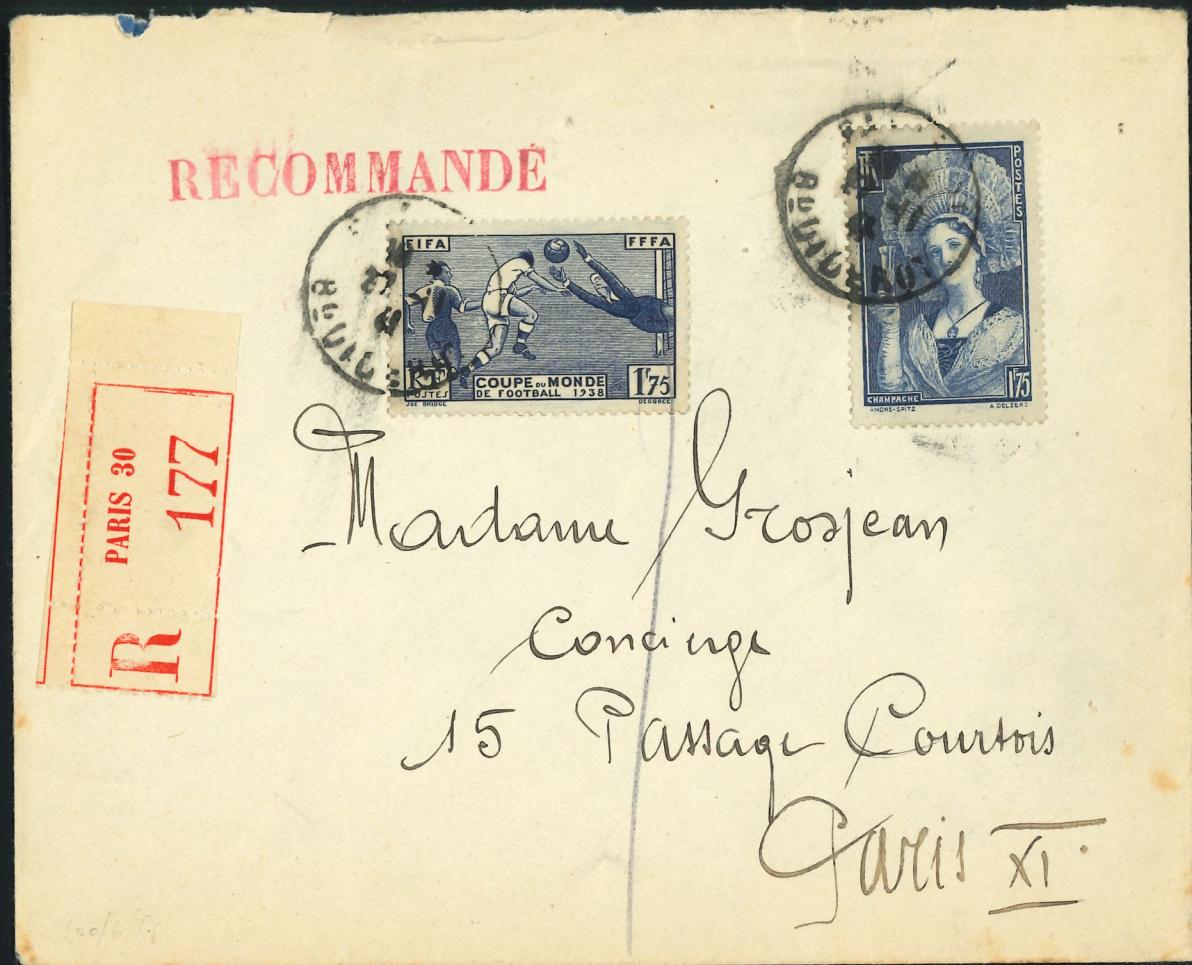 RECOMMANDÉ
FIFA FFFA
RF
POSTES
COUPE DU MONDE
DE FOOTBALL 1938
1F75
JOE BRIDGE DEGORCE
POSTES
1F75
CHAMPAGNE
ANDRÉ-SPITZ A. DELZERS
R PARIS 30
177
Madame Grosjean
Concierge
15 Passage Courtois
Paris XI